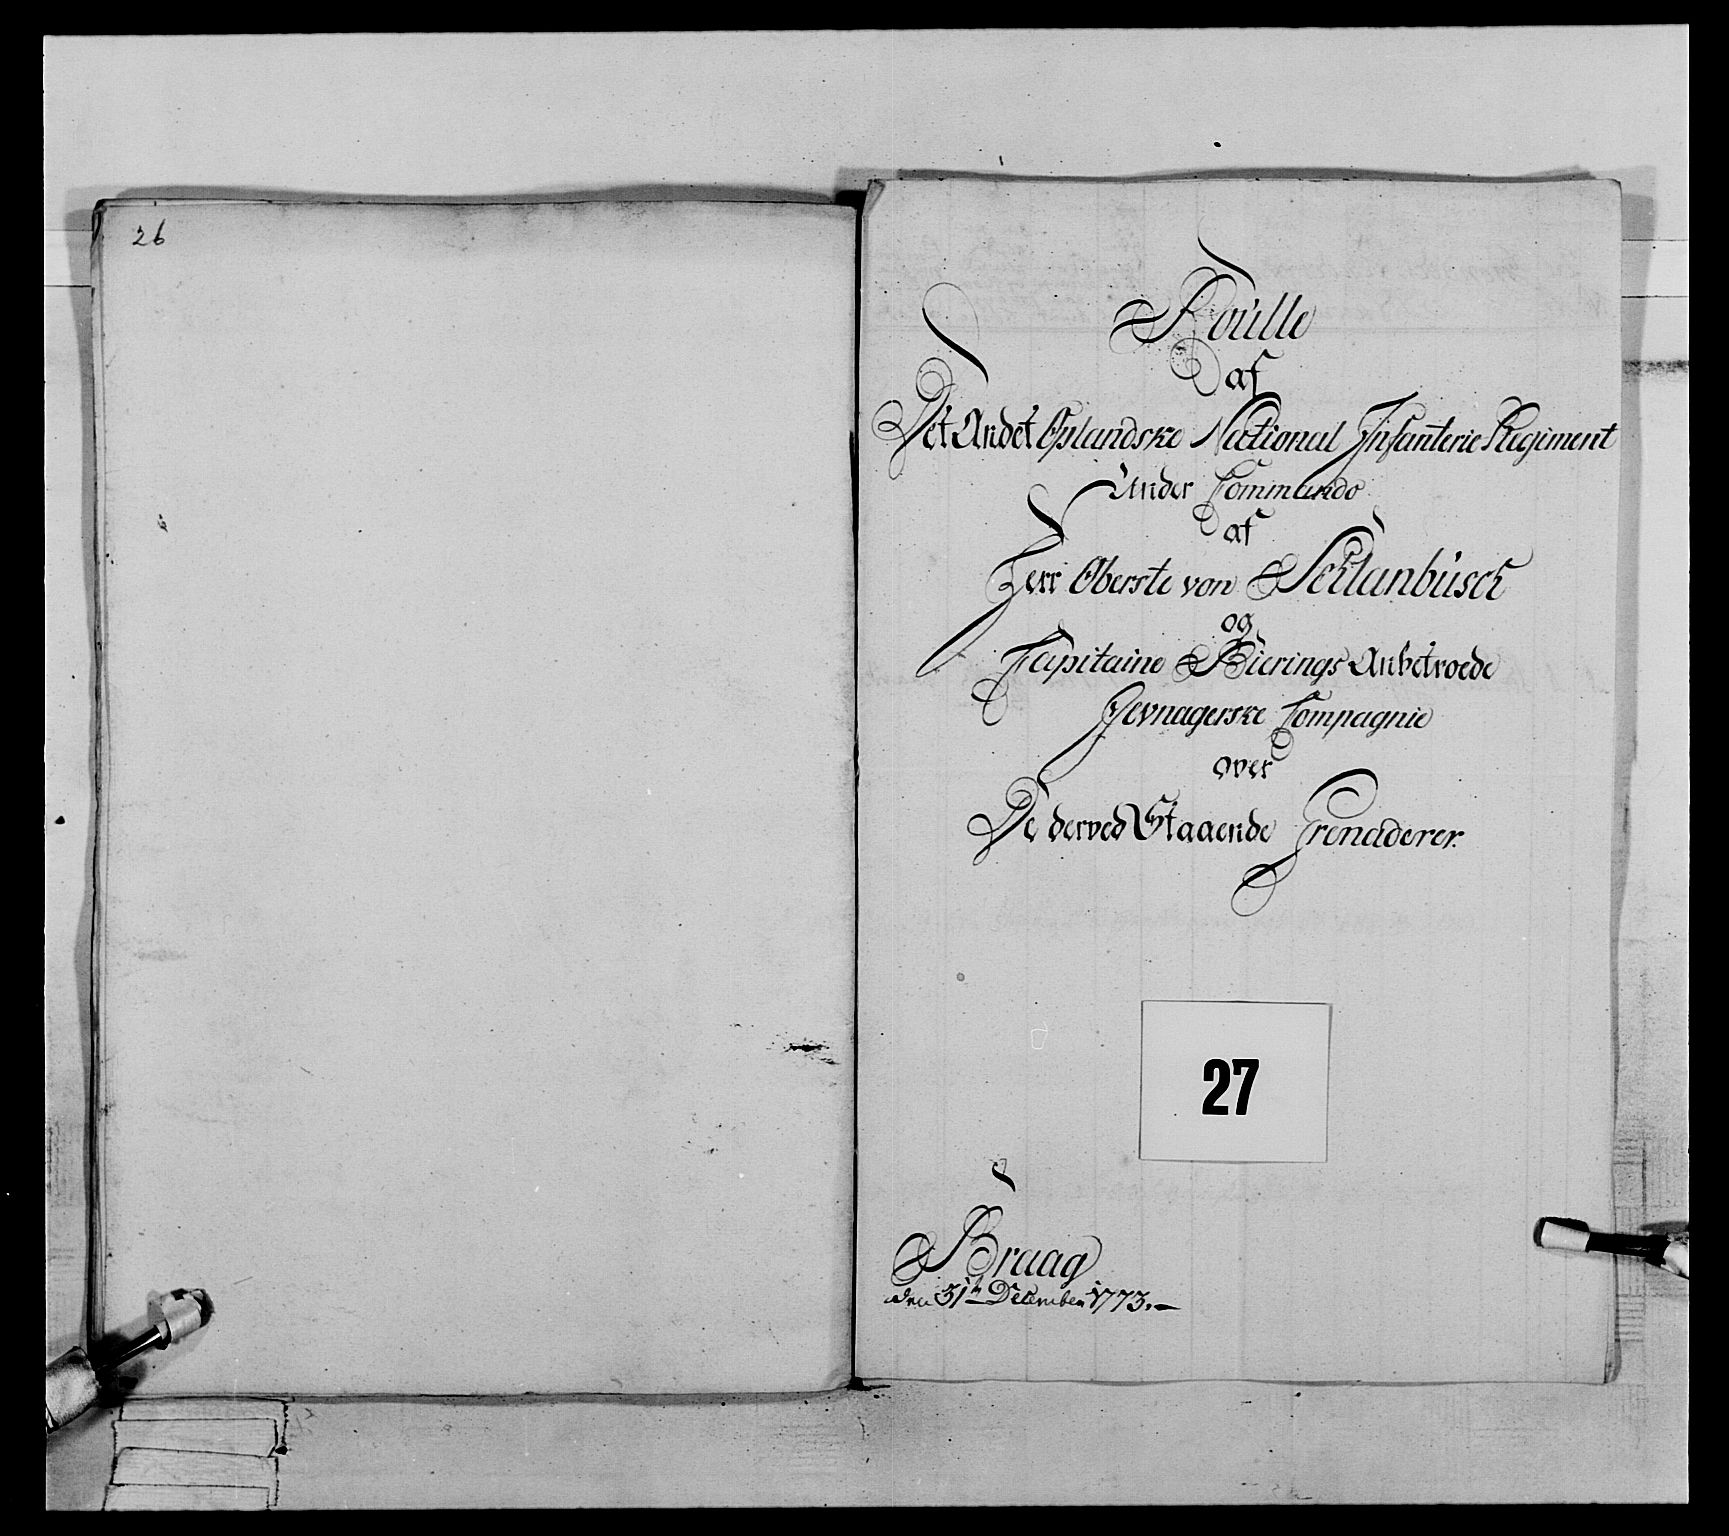 26
Roülle
af
Det Andet Oplandske National Infanterie Regiment
Under Commando
af
Herr Oberste von Schlanbüsch
og
Capitaine Bierings Anbetroede
Jevnagerske Compagnie
over
De derved Staaende Grenaderer.
27
Braag
den 31th December 1773.